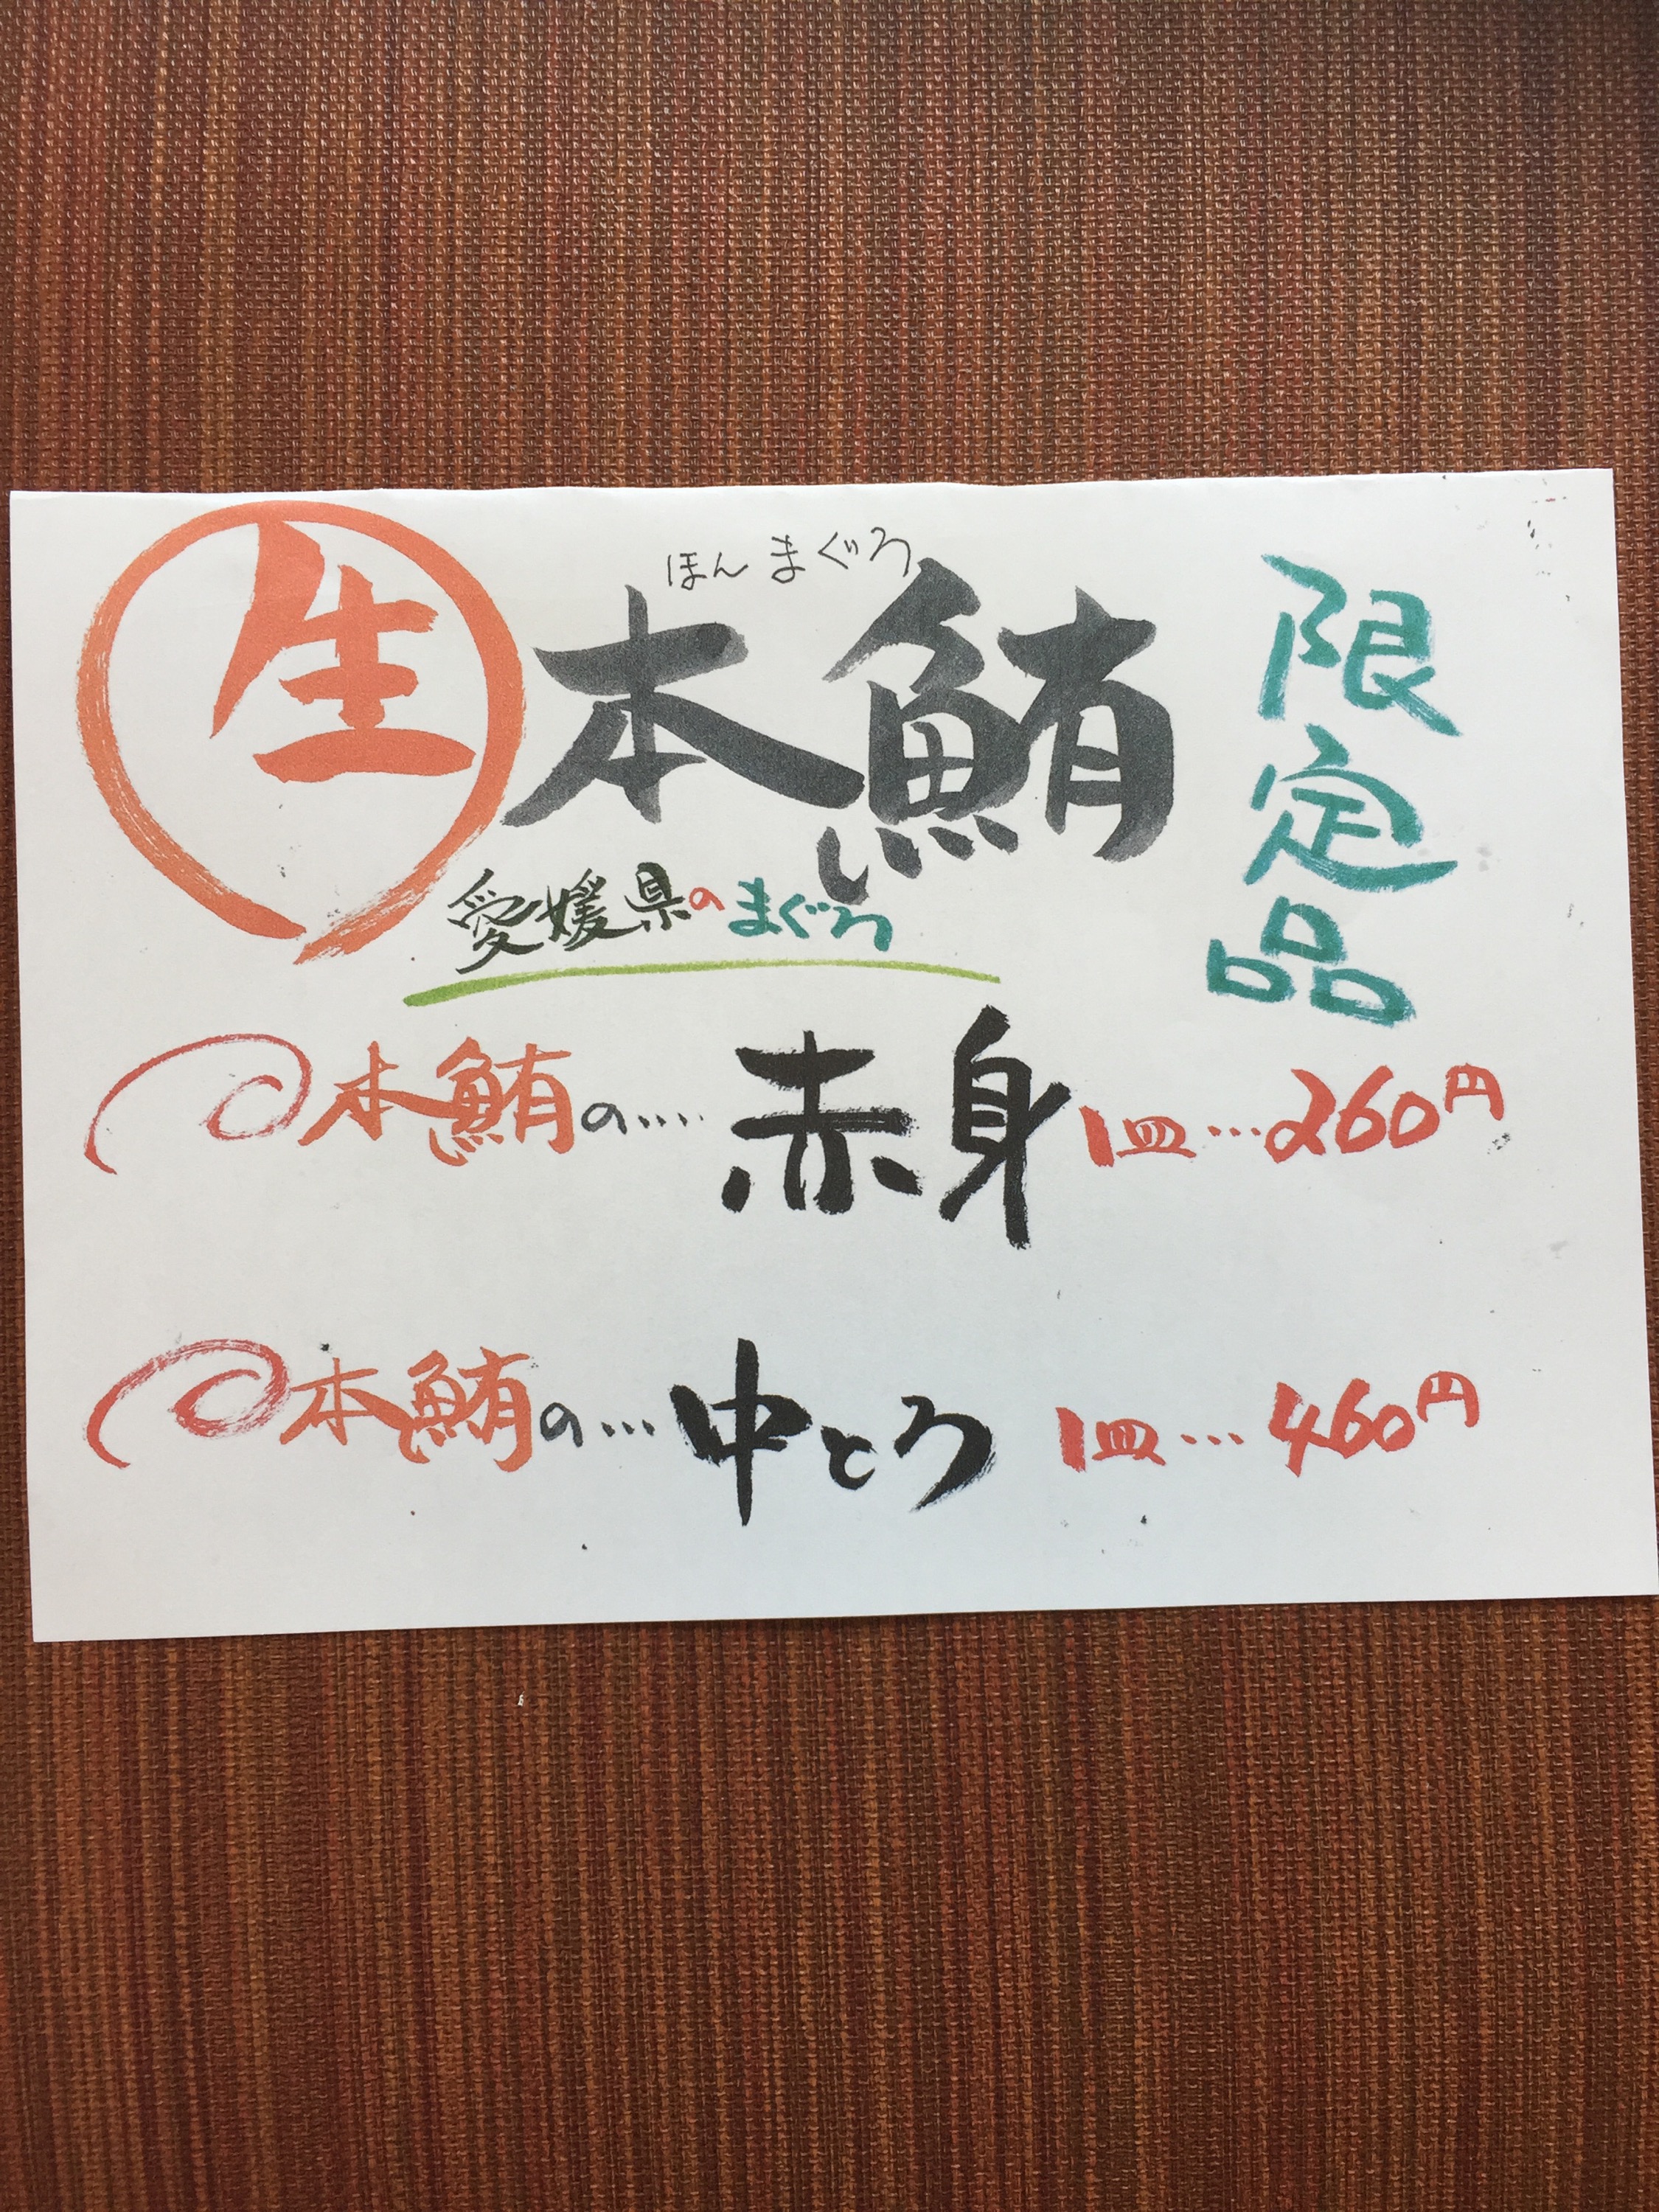 生
ほんまぐろ
本鮪
限定品
愛媛県のまぐろ
本鮪の....赤身 1皿...260円
本鮪の...中とろ 1皿...460円